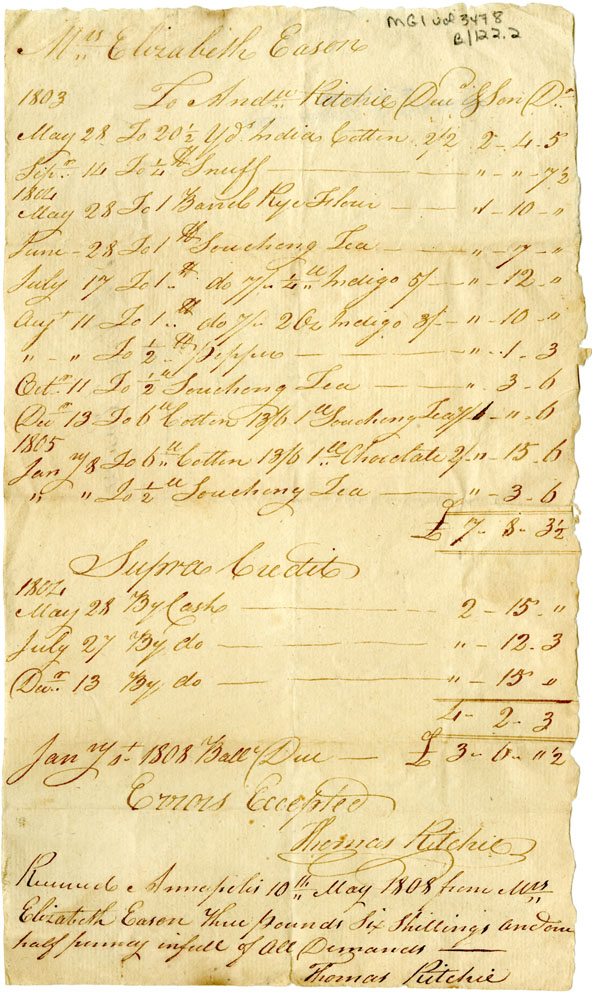 MG1 Vol 3478
B/122.2
Mrs Elizabeth Eason
1803 To Andw Ritchie Due & Son Dr
May 28 To 20½ Yds India Cotten 2/2 2-4-5
Sepr 14 To ¼ lb Snuff — " - " - 7½
1804
May 28 To 1 Barrel Rye Flour — 1-10-"
June - 28 To 1 lb Souchong Tea — " - 7 - "
July 17 To 1 lb do 7/- ¼ lb Indigo 5/- " - 12 - "
Augt 11 To 1 lb do 7/- 2 Oz Indigo 3/- " - 10 - "
" - " To ½ lb Pepper — " - 1 - 3
Octr 11 To ½ lb Souchong Tea — " 3 - 6
Decr 13 To 6 lb Cotten 13/6 1 lb Souchong Tea 7/6 1 - " - 6
1805
Jany 8 To 6 lb Cotten 13/6 1 lb Choclate 2/- " - 15 - 6
" " To ½ lb Souchong Tea — " - 3 - 6
£ 7 - 8 - 3½
Supra Credit
1804
May 28 By Cash — 2 - 15 - "
July 27 By do — " - 12 - 3
Decr 13 By do — " - 15 - "
4 - 2 - 3
Jany 1st 1808 Balle Due — £ 3 - 6 - " ½
Errors Excepted
Thomas Ritchie
Received Annapolis 10th May 1808 from Mrs
Elizabeth Eason three pounds Six Shillings and one
half penney in full of All Demands —
Thomas Ritchie